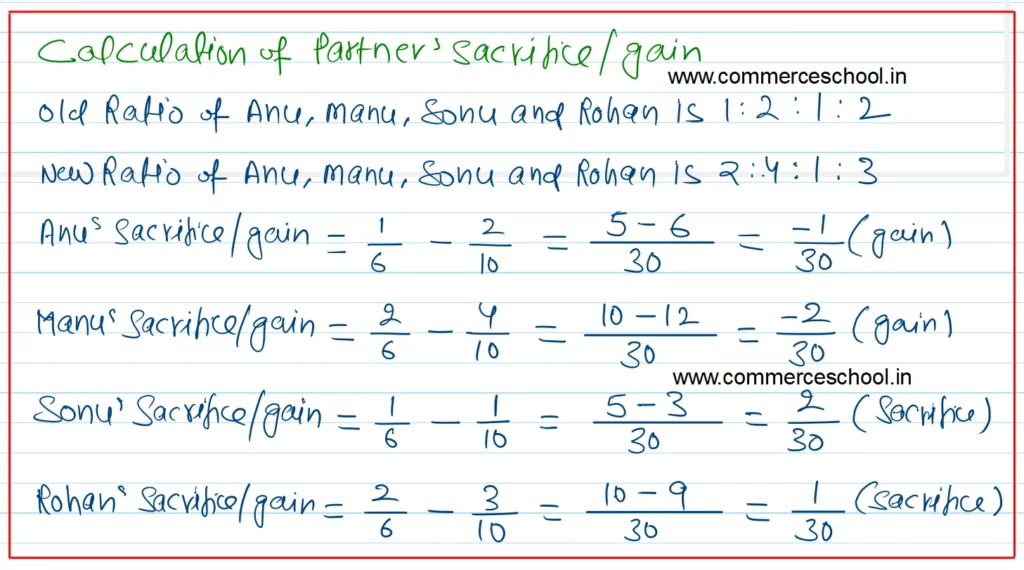 Calculation of Partner's sacrifice/gain
www.commerceschool.in
Old Ratio of Anu, Manu, Sonu and Rohan is 1:2:1:2
New Ratio of Anu, Manu, Sonu and Rohan is 2:4:1:3
Anu's Sacrifice/gain = 1/6 - 2/10 = (5 - 6)/30 = -1/30 (gain)
Manu's Sacrifice/gain = 2/6 - 4/10 = (10 - 12)/30 = -2/30 (gain)
www.commerceschool.in
Sonu' Sacrifice/gain = 1/6 - 1/10 = (5 - 3)/30 = 2/30 (Sacrifice)
Rohan's Sacrifice/gain = 2/6 - 3/10 = (10 - 9)/30 = 1/30 (Sacrifice)